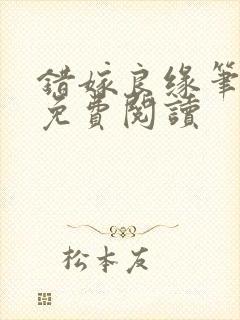 錯嫁良緣筆
免費閱讀
松本友